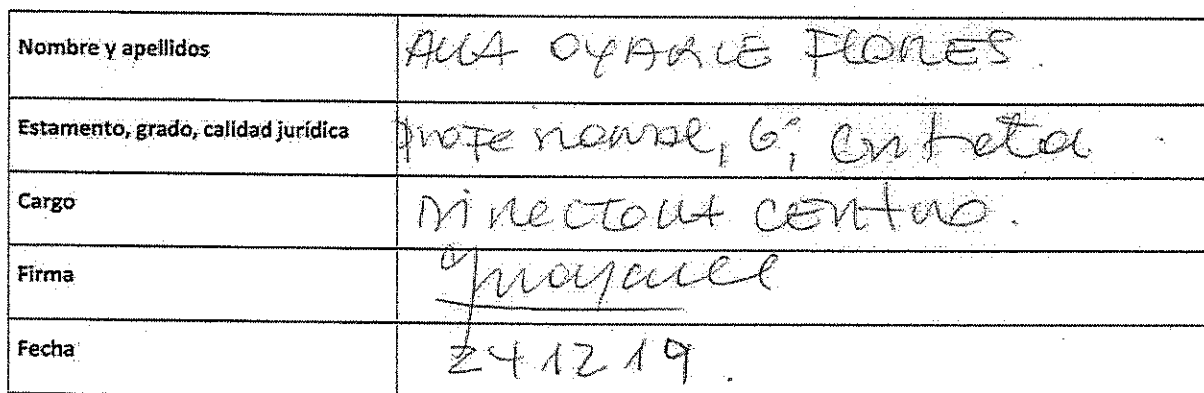 Nombre y apellidos ANA OYARCE FLORES.
Estamento, grado, calidad jurídica profesional, 6°, contrata
Cargo DIRECTORA CENTRO.
Firma
Fecha 241219.